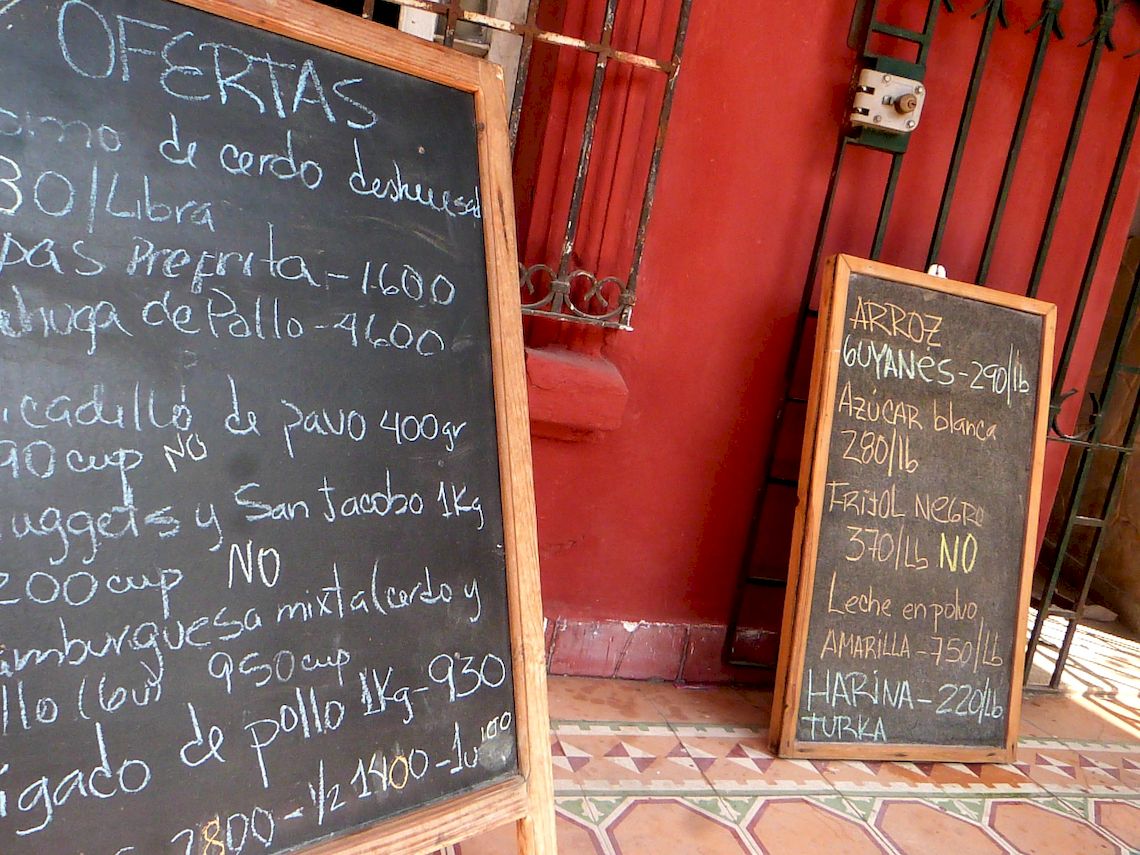 OFERTAS
de cerdo deshuesad
30/Libra
pas Prefrita-1600
huga de Pollo-4600
icadillo de pavo 400gr
90 cup NO
uggets y San Jacobo 1Kg
200 cup NO
amburguesa mixta(cerdo y
llo (6u) 950 cup
igado de pollo 1Kg-930
2800-1/2 1400-1u 100
ARROZ
GUYANES-290/lb
AZÚCAR blanca
280/lb
FRIJOL NEGRO
370/Lb NO
Leche en polvo
AMARILLA-750/Lb
HARINA-220/Lb
TURKA